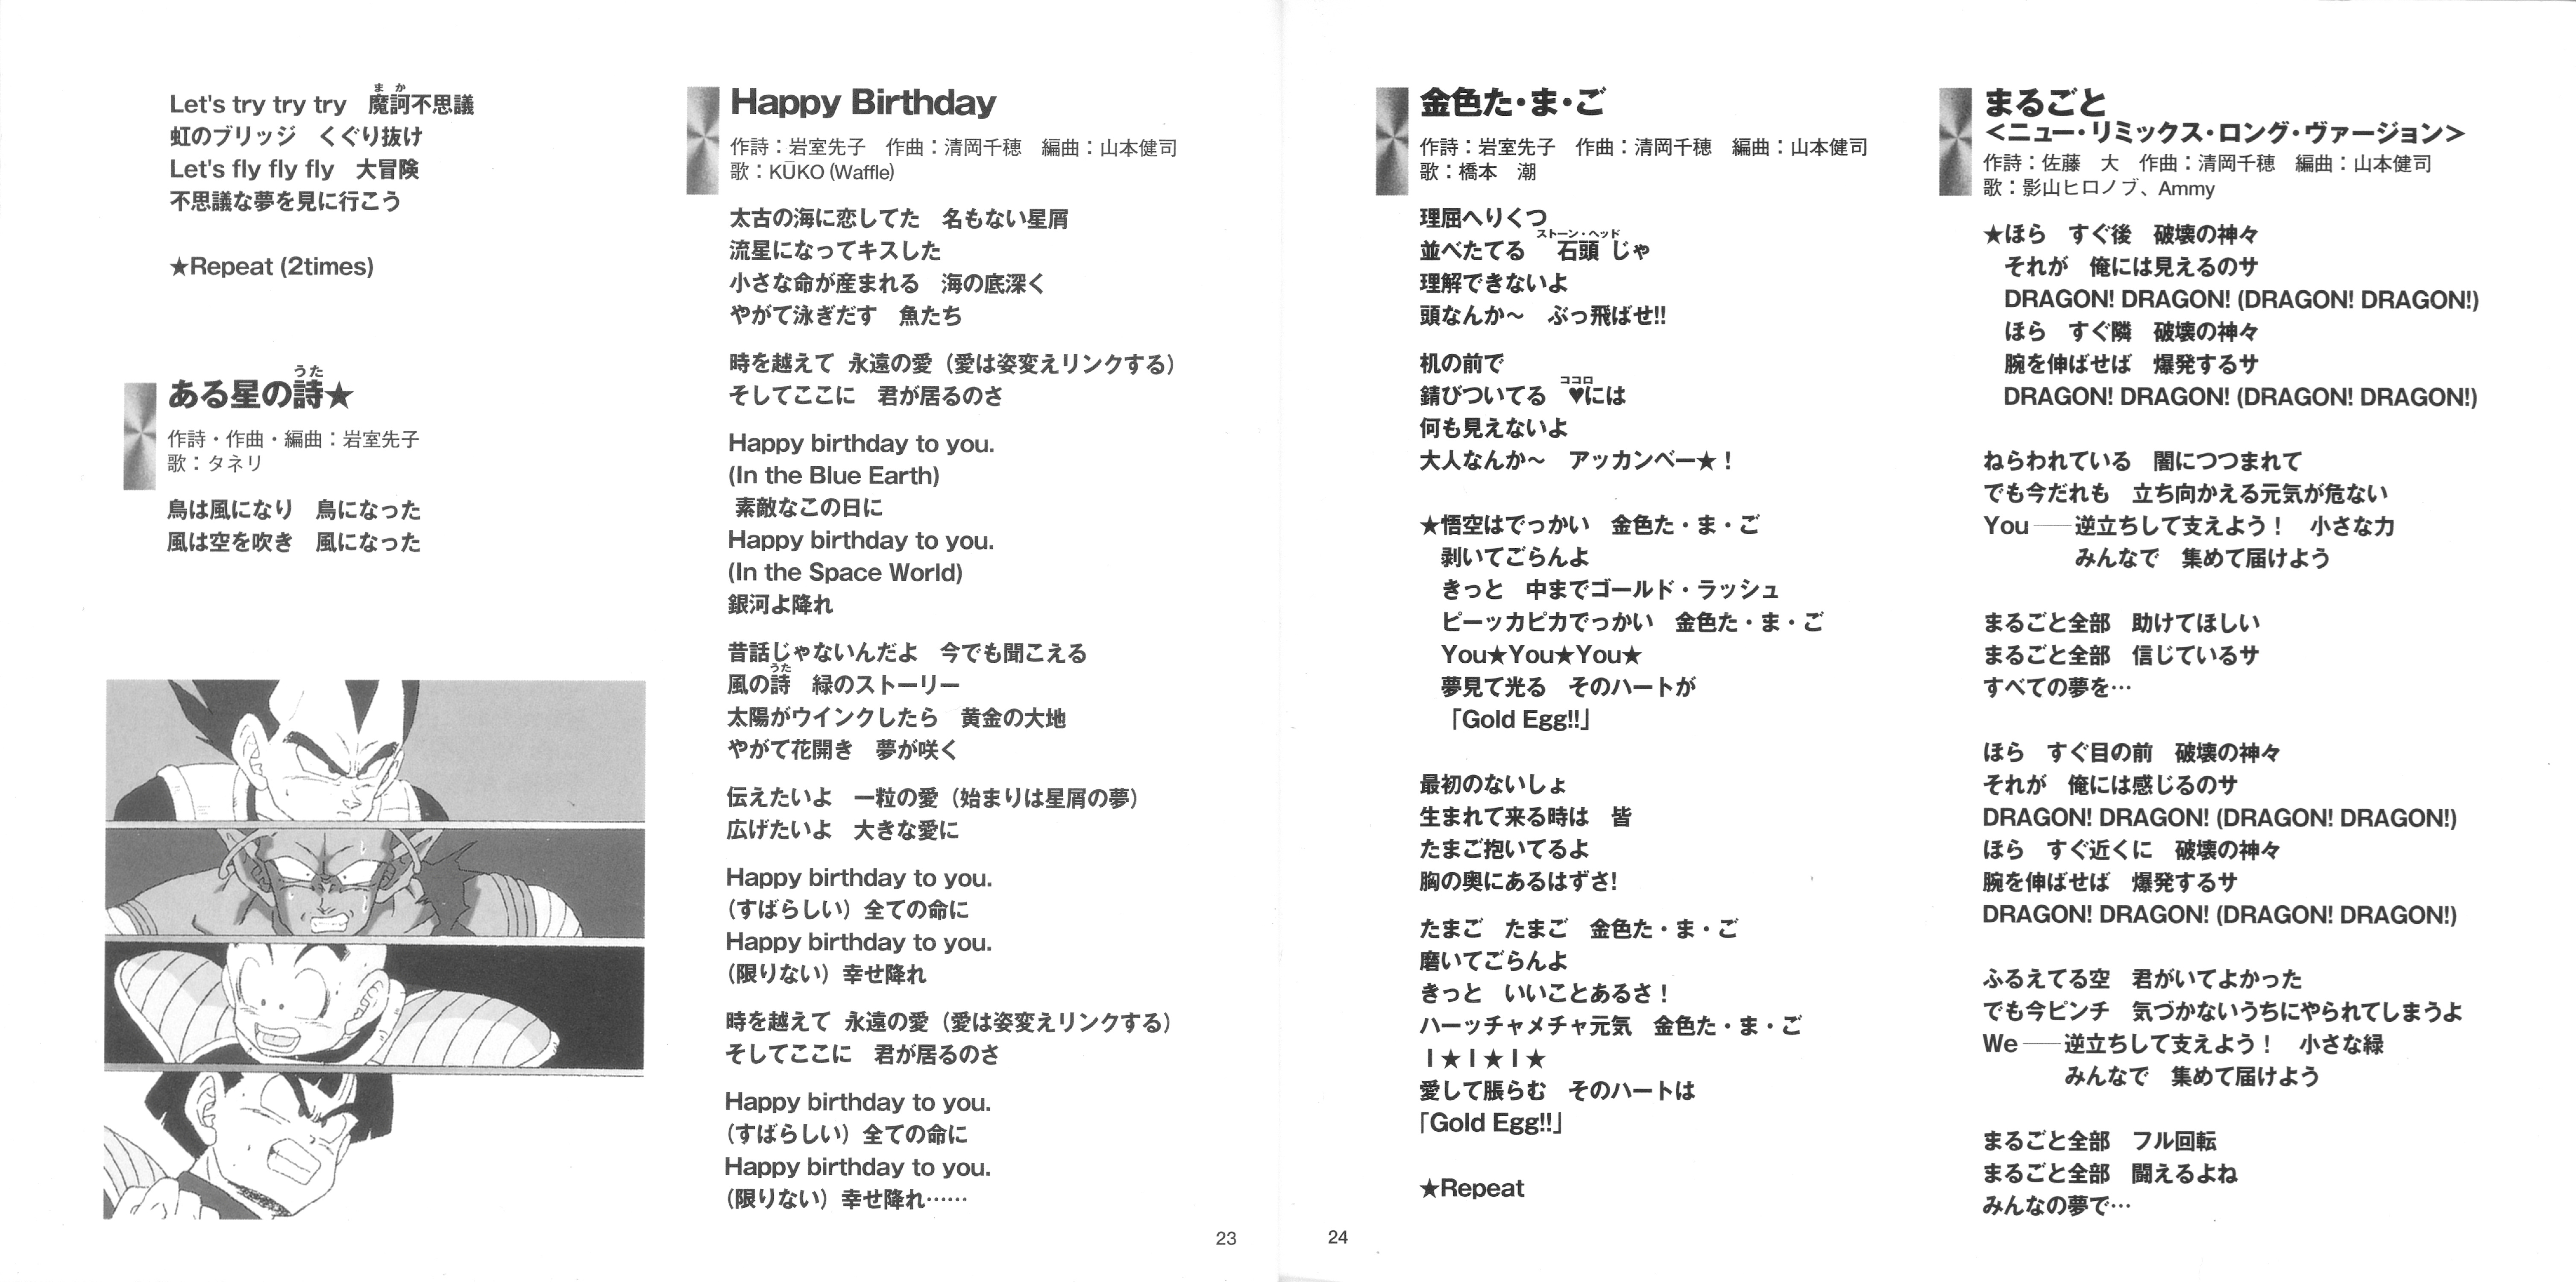 Let's try try try　魔訶不思議
虹のブリッジ　くぐり抜け
Let's fly fly fly　大冒険
不思議な夢を見に行こう
★Repeat (2times)
ある星の詩★
作詩・作曲・編曲：岩室先子
歌：タネリ
鳥は風になり　鳥になった
風は空を吹き　風になった
Happy Birthday
作詩：岩室先子　作曲：清岡千穂　編曲：山本健司
歌：KŪKO (Waffle)
太古の海に恋してた　名もない星屑
流星になってキスした
小さな命が産まれる　海の底深く
やがて泳ぎだす　魚たち
時を越えて 永遠の愛（愛は姿変えリンクする）
そしてここに　君が居るのさ
Happy birthday to you.
(In the Blue Earth)
素敵なこの日に
Happy birthday to you.
(In the Space World)
銀河よ降れ
昔話じゃないんだよ　今でも聞こえる
風の詩　緑のストーリー
太陽がウインクしたら　黄金の大地
やがて花開き　夢が咲く
伝えたいよ　一粒の愛（始まりは星屑の夢）
広げたいよ　大きな愛に
Happy birthday to you.
（すばらしい）全ての命に
Happy birthday to you.
（限りない）幸せ降れ
時を越えて 永遠の愛（愛は姿変えリンクする）
そしてここに　君が居るのさ
Happy birthday to you.
（すばらしい）全ての命に
Happy birthday to you.
（限りない）幸せ降れ……
23
金色た・ま・ご
作詩：岩室先子　作曲：清岡千穂　編曲：山本健司
歌：橋本　潮
理屈へりくつ
並べたてる　石頭じゃ
理解できないよ
頭なんか〜　ぶっ飛ばせ!!
机の前で
錆びついてる　♥には
何も見えないよ
大人なんか〜　アッカンベー★！
★悟空はでっかい　金色た・ま・ご
剥いてごらんよ
きっと　中までゴールド・ラッシュ
ピーッカピカでっかい　金色た・ま・ご
You★You★You★
夢見て光る　そのハートが
「Gold Egg!!」
最初のないしょ
生まれて来る時は　皆
たまご抱いてるよ
胸の奥にあるはずさ!
たまご　たまご　金色た・ま・ご
磨いてごらんよ
きっと　いいことあるさ！
ハーッチャメチャ元気　金色た・ま・ご
I★I★I★
愛して脹らむ　そのハートは
「Gold Egg!!」
★Repeat
24
まるごと
＜ニュー・リミックス・ロング・ヴァージョン＞
作詩：佐藤　大　作曲：清岡千穂　編曲：山本健司
歌：影山ヒロノブ、Ammy
★ほら　すぐ後　破壊の神々
それが　俺には見えるのサ
DRAGON! DRAGON! (DRAGON! DRAGON!)
ほら　すぐ隣　破壊の神々
腕を伸ばせば　爆発するサ
DRAGON! DRAGON! (DRAGON! DRAGON!)
ねらわれている　闇につつまれて
でも今だれも　立ち向かえる元気が危ない
You――逆立ちして支えよう！　小さな力
みんなで　集めて届けよう
まるごと全部　助けてほしい
まるごと全部　信じているサ
すべての夢を…
ほら　すぐ目の前　破壊の神々
それが　俺には感じるのサ
DRAGON! DRAGON! (DRAGON! DRAGON!)
ほら　すぐ近くに　破壊の神々
腕を伸ばせば　爆発するサ
DRAGON! DRAGON! (DRAGON! DRAGON!)
ふるえてる空　君がいてよかった
でも今ピンチ　気づかないうちにやられてしまうよ
We――逆立ちして支えよう！　小さな緑
みんなで　集めて届けよう
まるごと全部　フル回転
まるごと全部　闘えるよね
みんなの夢で…